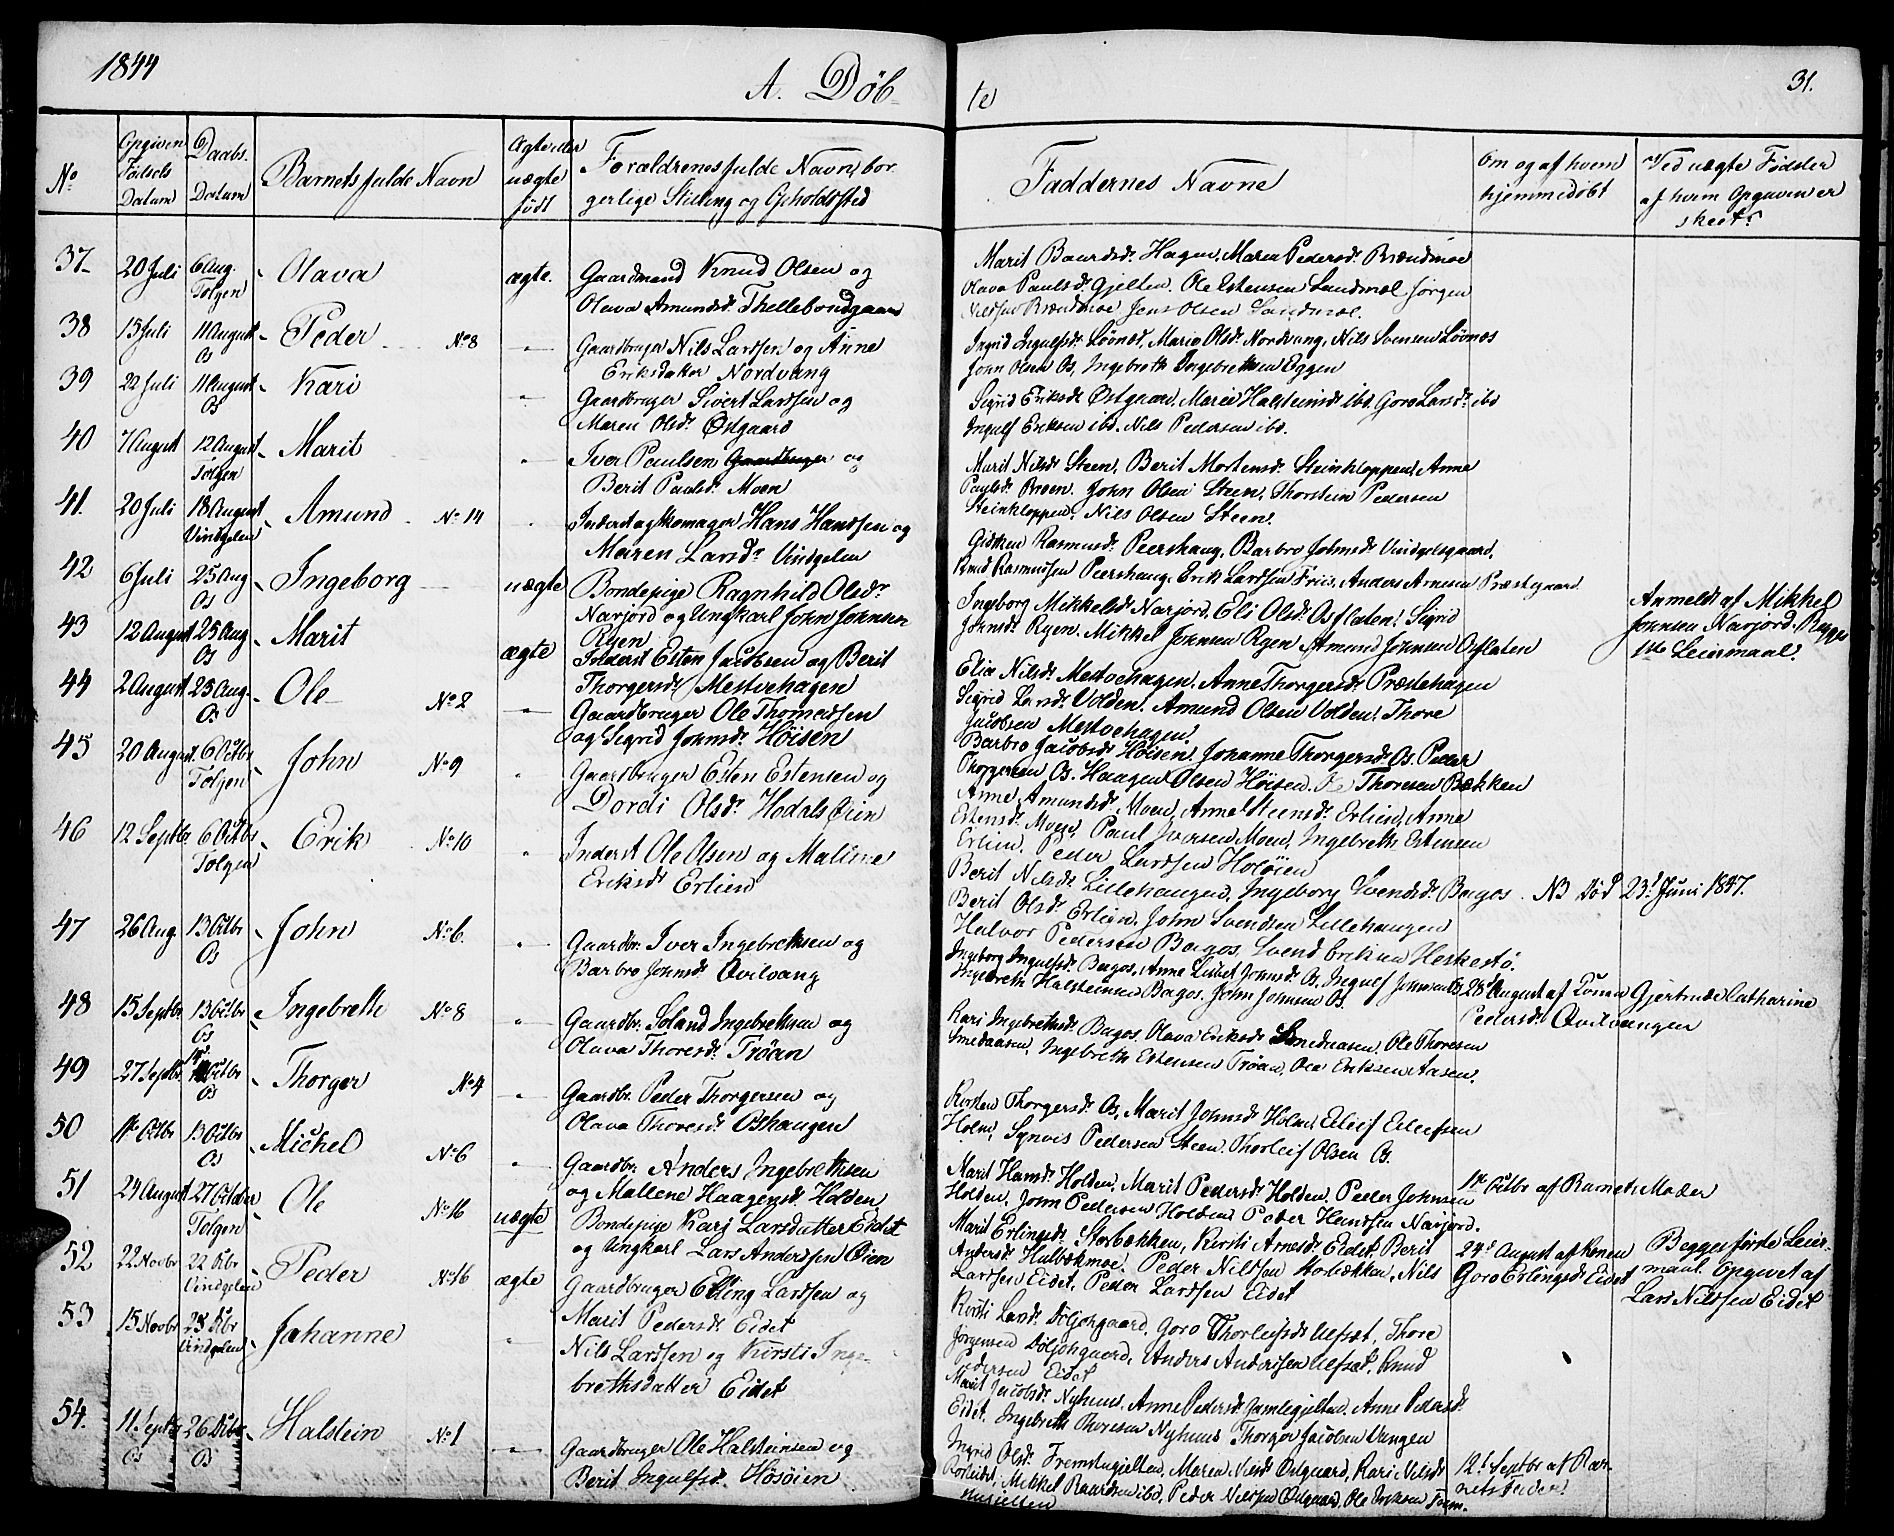 1844
A. Døb-
te
31.
No
Opgiven Fødsels Datum
Daabs Datum
Barnets fulde Navn
Ægte eller uægte født
Forældrenes fulde Navn, bor-
gerlige Stilling og Opholdssted
Faddernes Navne
Om og af hvem
hjemmedøbt
Ved uægte Fødsler
af hvem Opgaven er
skeet?
37. 20 Juli 6 Aug. Tolgen Olava ægte.
Gaardmand Knud Olsen og
Olava Amundsdr. Thellebondgaard
Marit Baardsdr. Hagen, Maren Pedersdr. Brændmoe
Olava Paulsdr. Gjelten, Ole Estensen Sandmæl Jørgen
Nielsen Brændmoe Jens Olsen Sandmæl.
38 13 Juli 11 August Os Peder No 8
Gaardbruger Nils Larssen og Anne
Eriksdatter Nordvang
Ingrid Ingulfsdr. Lønæs, Marie Olsdr. Nordvang, Nils Svensen Lønnæs
John Olsen Os, Ingebreth Ingebrethsen Eggen
39 22 Juli 11 August Os Kari
Gaardbruger Sivert Larssen og
Maren Olsdr. Østgaard
Sigrid Eriksdr. Østgaard, Maren Halsteinsdr. ibd. Goro Larsdr. ibd
Ingulf Eriksen ibd. Nils Pedersen ibd.
40 7 August 12 August Tolgen Marit
Iver Paulsen Gaardbruger og
Berit Paulsdr. Moen
Marit Nilsdr. Steen, Berit Mortensdr. Steinkloppen, Anne
Paulsdr. Broen. John Olsen Steen, Thorstein Pedersen
Steinkloppen, Nils Olsen Steen.
41. 20 Juli 18 August Vindgelen Amund No 14
Inderst og Skomager Hans Hansen og
Maren Larsdr. Vindgelen
Gidsken Rasmusdr. Peershaug, Barbro Johnsdr. Vindgelsgaard,
Knud Rasmussen Peershaug, Erik Larssen Friis, Anders Arnesen Præstgaard
42 6 Juli 25 Aug Os Ingeborg uægte
Bondepige Ragnhild Olsdr.
Narjord og Ungkarl John Johnsen
Ryen
Ingeborg Mikkelsdr. Narjord, Eli Olsdr. Osflaten, Sigrid
Johnsdr. Ryen, Mikkel Johnsen Ryen Amund Johnsen Osflaten
Anmeldt af Mikkel
Johnsen Narjord. Begges
1ste Leiermaal.
43 12 August 25 Aug Os Marit ægte
Inderst Esten Jacobsen og Berit
Thorgersdr. Mestvehagen
Elia Nilsdr. Mestvehagen, Anne Thorgersdr. Præstehagen
Sigrid Larsdr. Volden. Amund Olsen Volden, Thore
Jacobsen Mestvehagen
44 2 August 25 Aug. Os Ole No 2
Gaardbruger Ole Thomassen
og Sigrid Johnsdr. Høisen
Barbro Jacobsdr. Høisen, Johanne Thorgersdr. Os. Peder
Thorgersen Os. Haagen Olsen Høisen. Thoresen Bækken
45 20 August 6 Octbr. Tolgen John No 9
Gaardbruger Esten Estensen og
Dordi Olsdr. Hodals Øien
Anne Amundsdr. Moen, Anne Steensdr. Erlien, Anne
Estensdr. Moen, Paul Iversen Moen, Ingebreth Estensen
Erlien, Peder Larssen Holøien
46 12 Septbr 6 Octbr Tolgen Erik No 10
Inderst Ole Olsen og Malene
Eriksdr. Erlien
Berit Nilsdr. Lillehaugen, Ingeborg Svendsdr. Bagos. NB Død 23d. Juni 1847.
Berit Olsdr. Erlien, John Svendsen Lillehaugen
Halvor Pedersen Bagos, Svend Eriksen Herkestø.
47 26 Aug 13 Octbr Os John No 6.
Gaardbr. Iver Ingebrethsen og
Barbro Johnsdr. Qvilvang
Ingeborg Ingulfsdr. Bagos, Anne Lisbet Johnsdr. Os, Ingulf Johnsen Os
Ingebreth Halsteinsen Bagos. John Johnsen Os
28 August af Konen Gjertrude Catharine
Pedersdr. Qvilvangen
48 15 Septbr 13 Octbr Os Ingebreth No 8
Gaardbr. Joland Ingebrethsen og
Olava Thoresdr. Trøan
Kari Ingebrethsdr. Bagos, Olava Eriksdr. Smedaasen, Ole Thoresen
Smedaasen, Ingebreth Estensen Trøan, Ole Eriksen Aasen.
49 27 Septbr Octbr Os Thorger No 4
Gaardbr. Peder Thorgersen og
Olava Thoresdr. Oshaugen
Kirsten Thorgersdr. Os, Marit Johnsdr. Holm, Eileif Eileifsen
Holm, Synvis Pedersen Steen, Thorleif Olsen Os.
50 1ste Octbr 13 Octbr Os Michel No 6
Gaardbr. Anders Ingebrethsen
og Mallene Haagensdr. Holden
Marit Hansdr. Holden, Marit Pedersdr. Holden, Peder Johnsen
Holden, John Pedersen Holden Peder Hansen Narjord.
1ste Octbr af Barnets Moder
51 24 August 27 October Tolgen Ole No 16 uægte
Bondepige Kari Larsdatter Eidet
og Ungkarl Lars Anderssen Øien
Marit Erlingsdr. Storbækken, Kirsti Arnesdr. Eidet, Berit
Andersdr. Hulbækmoe. Peder Nilsen Storbækken, Nils
Larssen Eidet, Peder Larssen Eidet
24d. August af Konen
Goro Erlingsdr. Eidet
Begges første Leier-
maal. Opgivet af
Lars Nilssen Eidet
52 22 Novbr 22 Dcbr Vindgelen Peder No 16 ægte
Gaardbruger Elling Larssen og
Marit Pedersdr. Eidet
Kirsti Larsdr. Døljehgaard, Goro Thorleifsdr. Ulfsæt, Thore
Jørgensen Døljehgaard, Anders Anderssen Ulfsæt, Knud
Pedersen Eidet
53 15 Novbr 23 Dcbr Vindgelen Johanne
Nils Larssen og Kirsti Inge-
brethsdatter Eidet
Marit Jacobsdr. Nyhuus, Anne Pedersdr. Gamlegjelten, Anne Pedersdr.
Eidet, Ingebreth Thoresen Nyhuus Thorger Jacobsen Vangen
54. 11. Septbr Os 26 Dcbr Os Halstein No 1
Gaardbruger Ole Halsteinsen og
Berit Ingulfsdr. Høsøien
Ingrid Olsdr. Fremstugjelten, Maren Nilsdr. Østgaard, Kari Nilsdr.
Mikkel Baardsen ibd, Peder Nilssen Østgaard, Ole Eriksen Frem-
stugjelten
12t. Septbr af Bar-
nets Fader